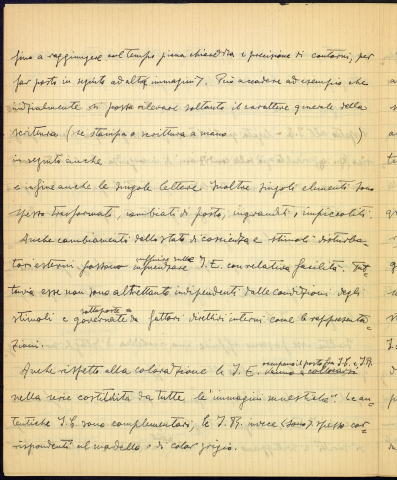 fino a raggiungere col tempo piena chiarezza e precisione di contorni, per
far posto in seguito ad altre immagini). Può accadere ad esempio che
inizialmente si possa rilevare soltanto il carattere generale della
scrittura (se stampa o scrittura a mano )
in seguito anche
e infine anche le singole lettere. Inoltre singoli elementi sono
spesso trasformati, cambiati di posto, ingranditi o impiccoliti.
Anche cambiamenti dello stato di coscienza e stimoli disturba-
tori esterni possono influire sulle influenzare I.E. con relativa facilità. Tut-
tavia esse non sono altrettanto indipendenti dalle condizioni degli
stimoli e sottoposte a governate da fattori direttivi interni come le rappresenta-
zioni.
Anche rispetto alla colorazione le I.E. occupano il posto fra I.C. e I.R.
nella serie costituita da tutte le "immagini mnestiche". Le au-
tentiche I.C. sono complementari, le I.R. invece (sono) spesso cor-
rispondenti al modello o di color grigio.